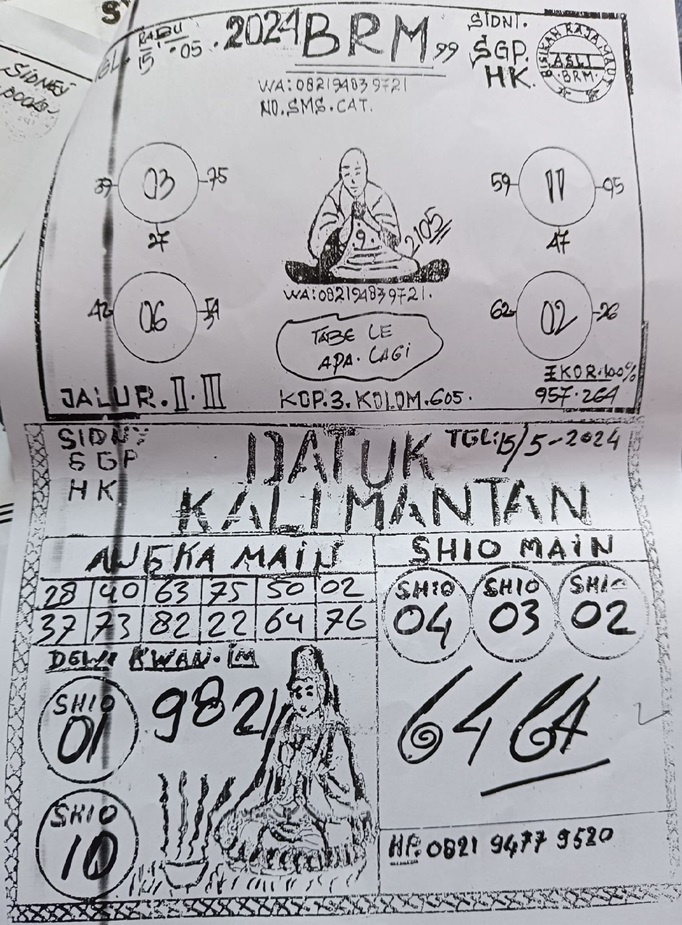 S
SIDNEY
TGL. RABU 15 .05 .2024 BRM 99
SIDNI.
SGP.
HK.
BISIKAN RAJA MAUT
ASLI
BRM.
WA:082194839721
NO.SMS.CAT.
03 75
27
59 11 95
47
9.
2105
42 06 54
62 02 26
WA:082194839721.
TABE LE
APA.LAGI
EKOR.100%
957.264
JALUR.II.III
KOP.3.KOLOM.605.
SIDNY
SGP
HK
DATUK
KALIMANTAN
TGL:15/5-2024
ANGKA MAIN
28 40 63 75 50 02
37 73 82 22 64 76
SHIO MAIN
SHIO 04
SHIO 03
SHIO 02
DEWI KWAN.IM
SHIO 01
9821
SHIO 10
6464
HP. 0821 9477 9520